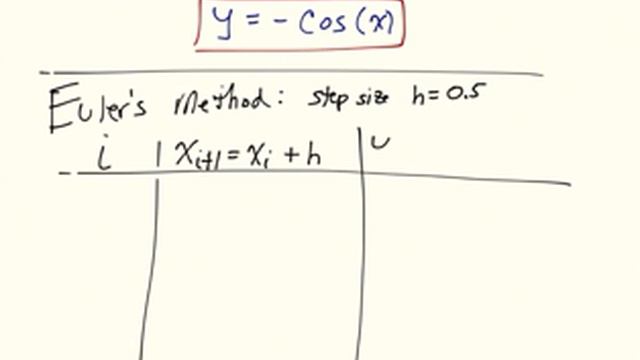 y = - Cos (x)
Euler's method: step size h = 0.5
i | x_{i+1} = x_i + h |